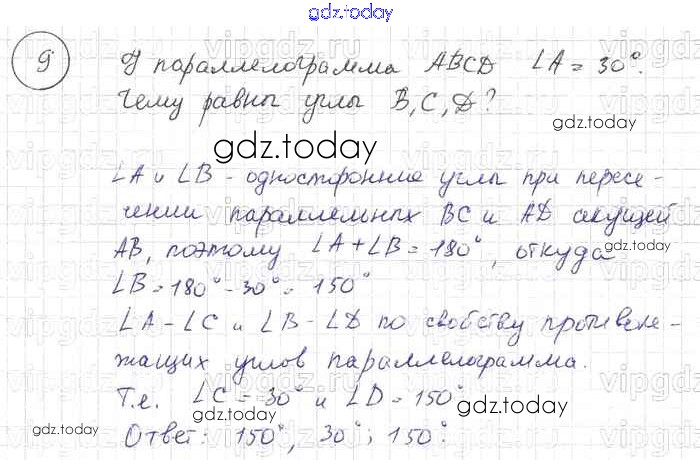 gdz.today
9 У параллелограмма ABCD ∠A = 30°.
Чему равны углы B, C, D?
gdz.today
gdz.today
∠A и ∠B - односторонние углы при пересе-
чении параллельных BC и AD секущей
gdz.today
AB, поэтому ∠A + ∠B = 180°, откуда
∠B = 180° - 30° = 150°
∠A = ∠C и ∠B = ∠D по свойству противоле-
жащих углов параллелограмма.
Т.е. ∠C = 30° и ∠D = 150°
gdz.today
gdz.today
Ответ: 150°, 30°; 150°.